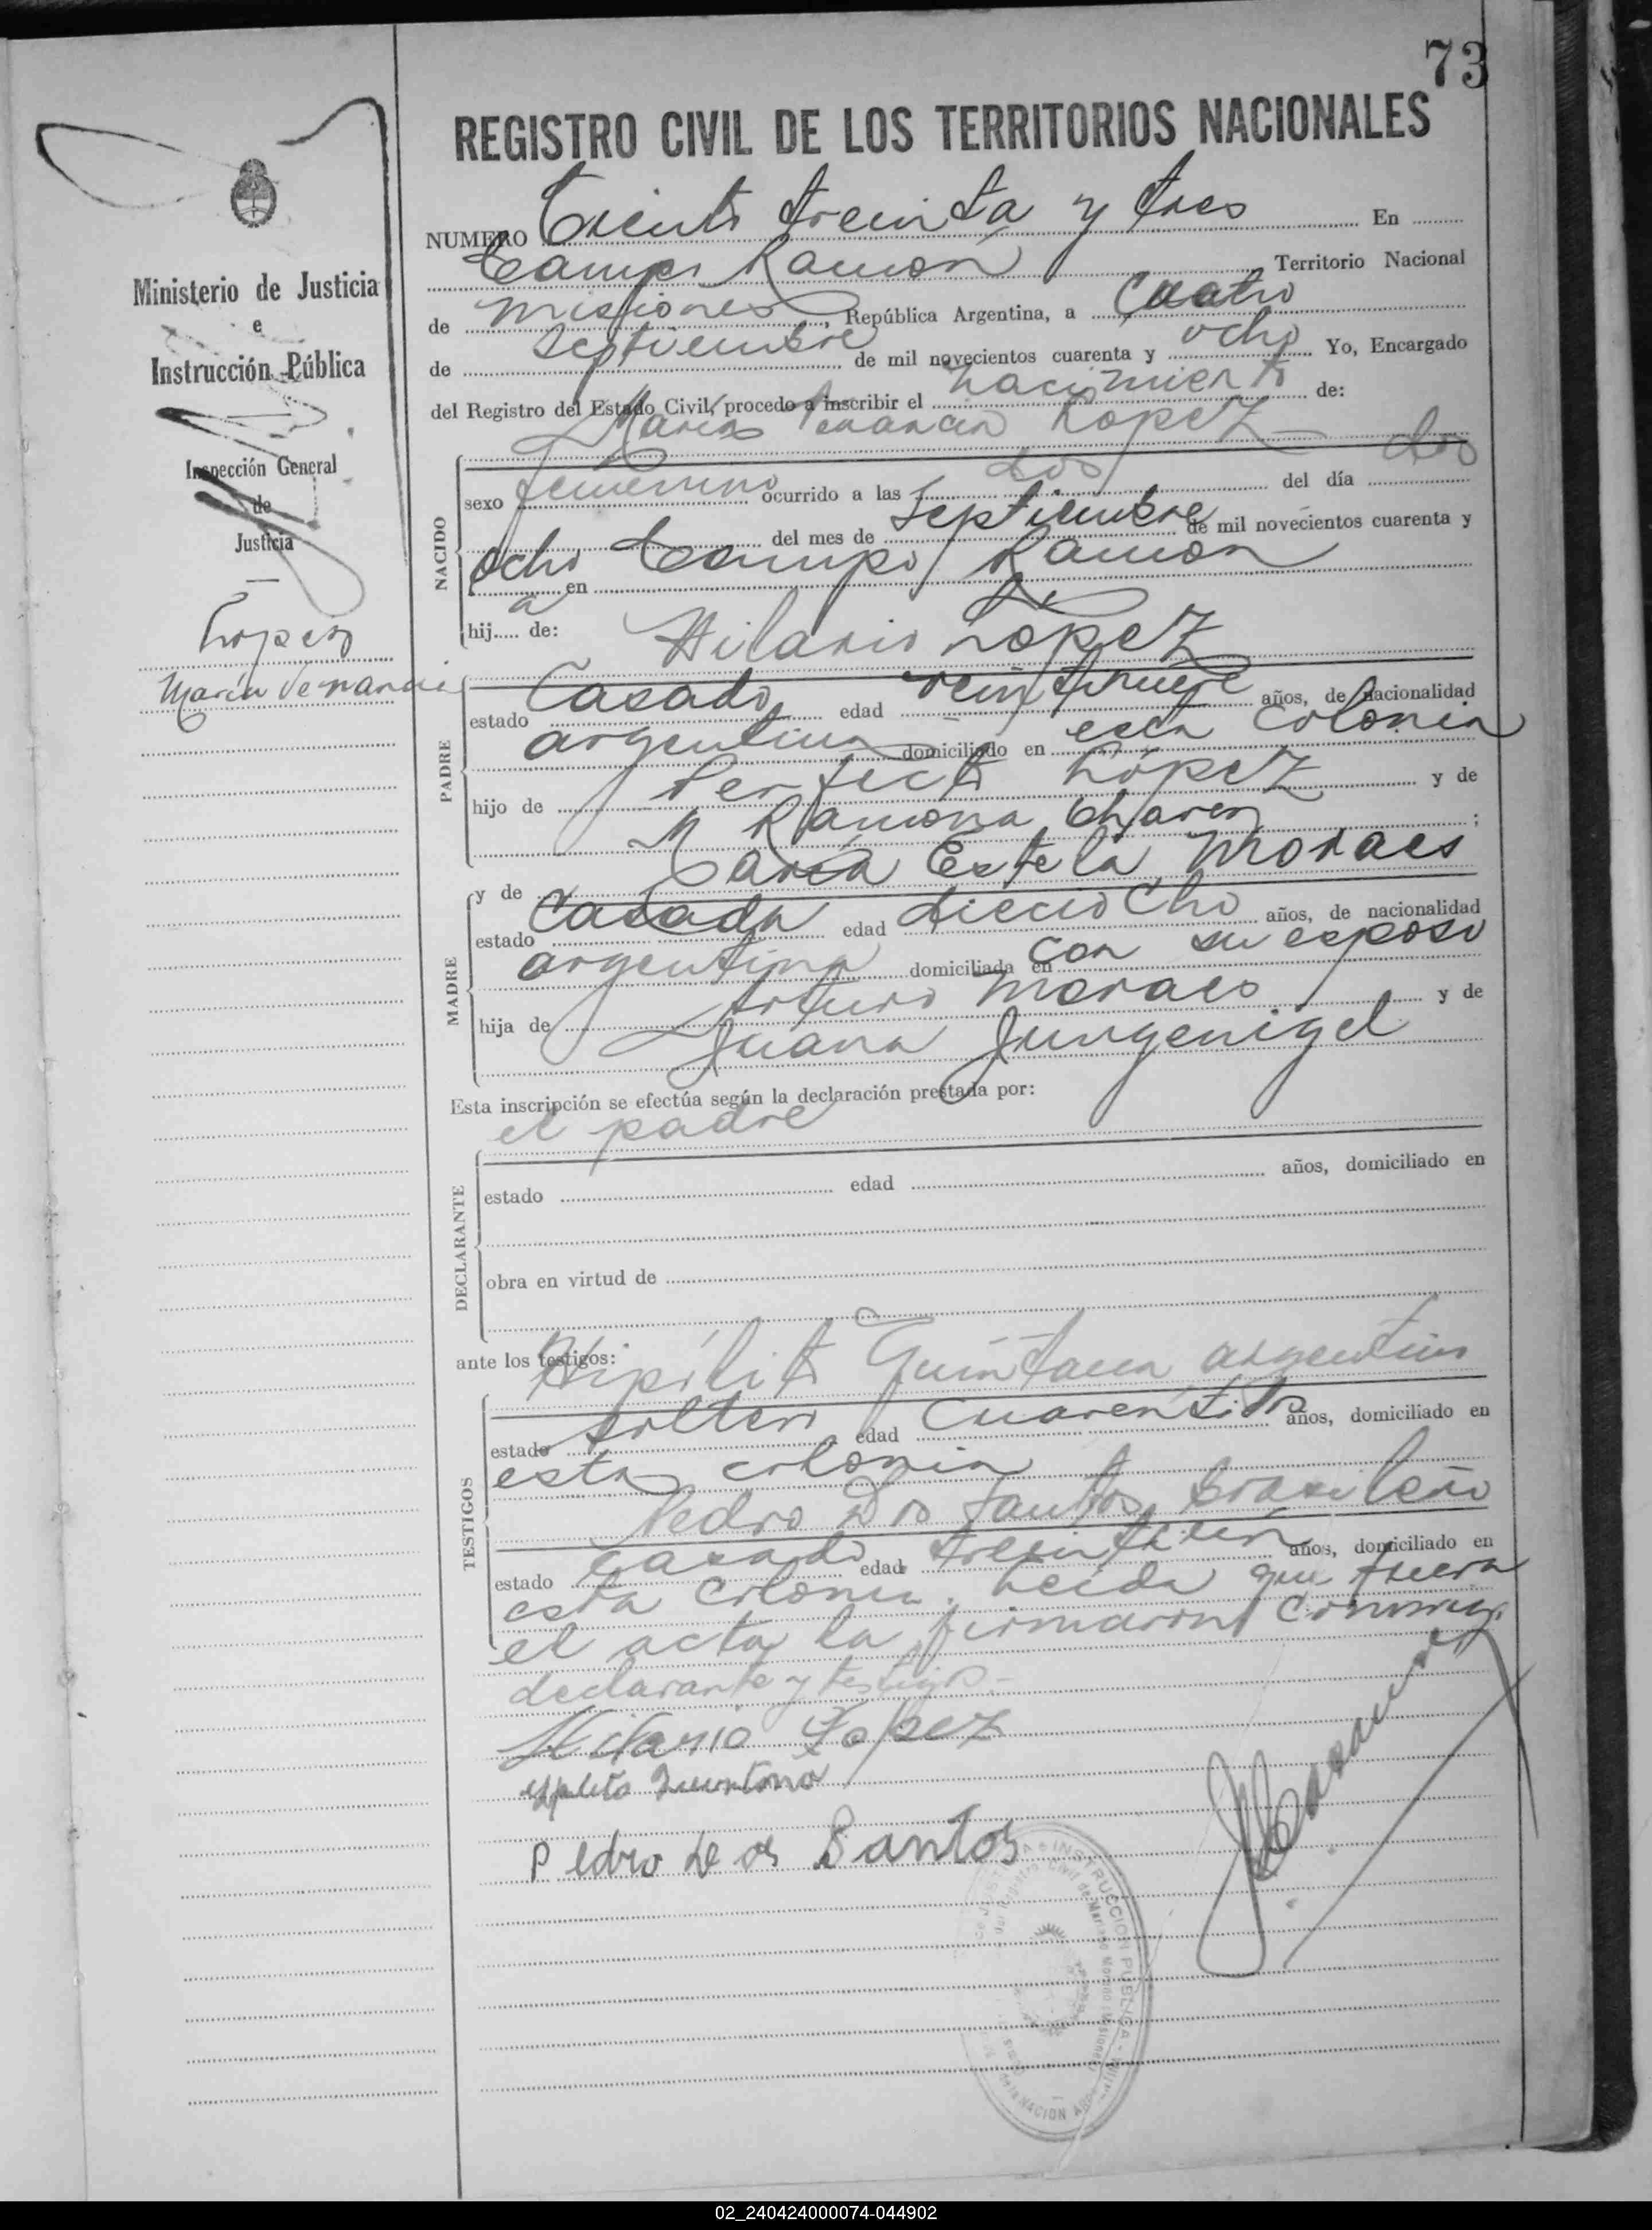 73
REGISTRO CIVIL DE LOS TERRITORIOS NACIONALES
Ministerio de Justicia
e
Instrucción Pública
Inspección General
de
Justicia
Lopez
María Venancia
NUMERO Ciento treinta y tres En
Campo Ramon Territorio Nacional
de Misiones, República Argentina, a Cuatro
de Septiembre de mil novecientos cuarenta y ocho Yo, Encargado
del Registro del Estado Civil, procedo a inscribir el nacimiento de:
María Venancia Lopez
NACIDO
sexo femenino ocurrido a las dos del día dos
del mes de Septiembre de mil novecientos cuarenta y
ocho en Campo Ramon
hija de: Hilario Lopez
PADRE
estado Casado edad veintinueve años, de nacionalidad
argentina domiciliado en esta colonia
hijo de Perfecto López y de
Ramona Chavez;
y de María Estela Moraes
MADRE
estado Casada edad dieciocho años, de nacionalidad
argentina domiciliada en con su esposo
hija de Arturo Moraes y de
Juana
Esta inscripción se efectúa según la declaración prestada por:
el padre
DECLARANTE
estado edad años, domiciliado en
obra en virtud de
ante los testigos: Hipólito Quintana argentino
TESTIGOS
estado soltero edad cuarentidos años, domiciliado en
esta colonia
Pedro Dos Santos, brasileño
estado casado edad años, domiciliado en
esta colonia. Leída que fuera
el acta la firmaron conmigo
declarante y testigos.-
Hilario Lopez
Quintana
Pedro Dos Santos
INSTRUCCION PUBLICA
02_240424000074-044902